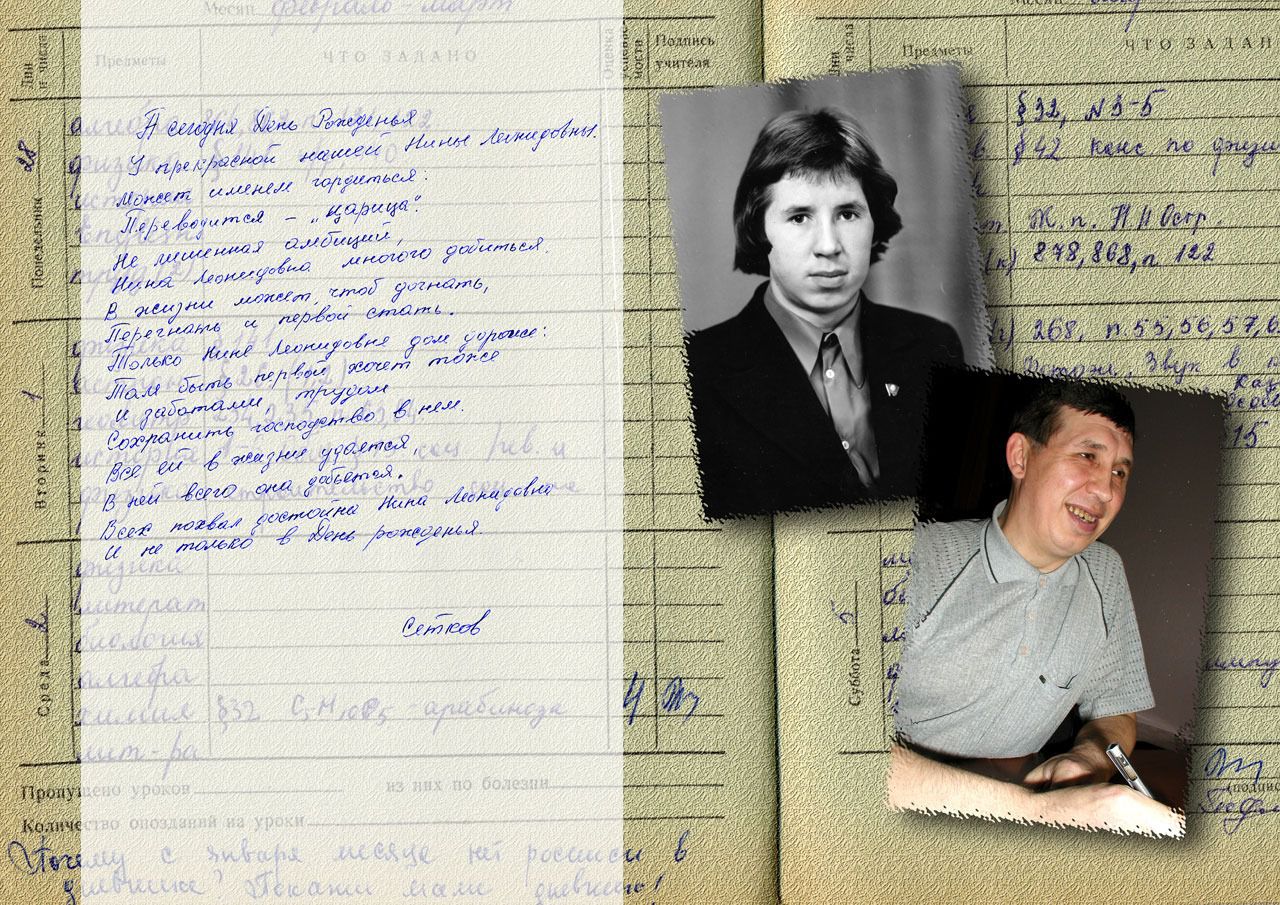 Месяц февраль - март
Дни и числа
Предметы
ЧТО ЗАДАНО
Оценка
Подпись учителя
Понедельник 28
Вторник 1
Среда 2
А сегодня День Рожденья
У прекрасной нашей Нины Леонидовны.
Может именем гордиться:
Переводится – „царица".
Не лишенная амбиций,
Нина Леонидовна многого добиться.
В жизни может, чтоб догнать,
Перегнать и первой стать.
Только Нине Леонидовне дом дороже:
Там быть первой хочет тоже
И заботами трудом
Сохранить господство в нем.
Все ей в жизни удается,
В ней всего она добьется.
Всех похвал достойна Нина Леонидовна
И не только в День рожденья.
Сетков
физика
литерат
биология
алгебра
химия §32 C5H10O5 - арабиноза
4
лит-ра
Пропущено уроков
из них по болезни
Количество опозданий на уроки
Почему с января месяца нет росписи в
дневнике? Покажи маме дневник!
Предметы
ЧТО ЗАДАН
§32, N3-5
§42
878, 868, п 122
268, п. 55, 56, 57, 6
Звук в
15
Суббота 5